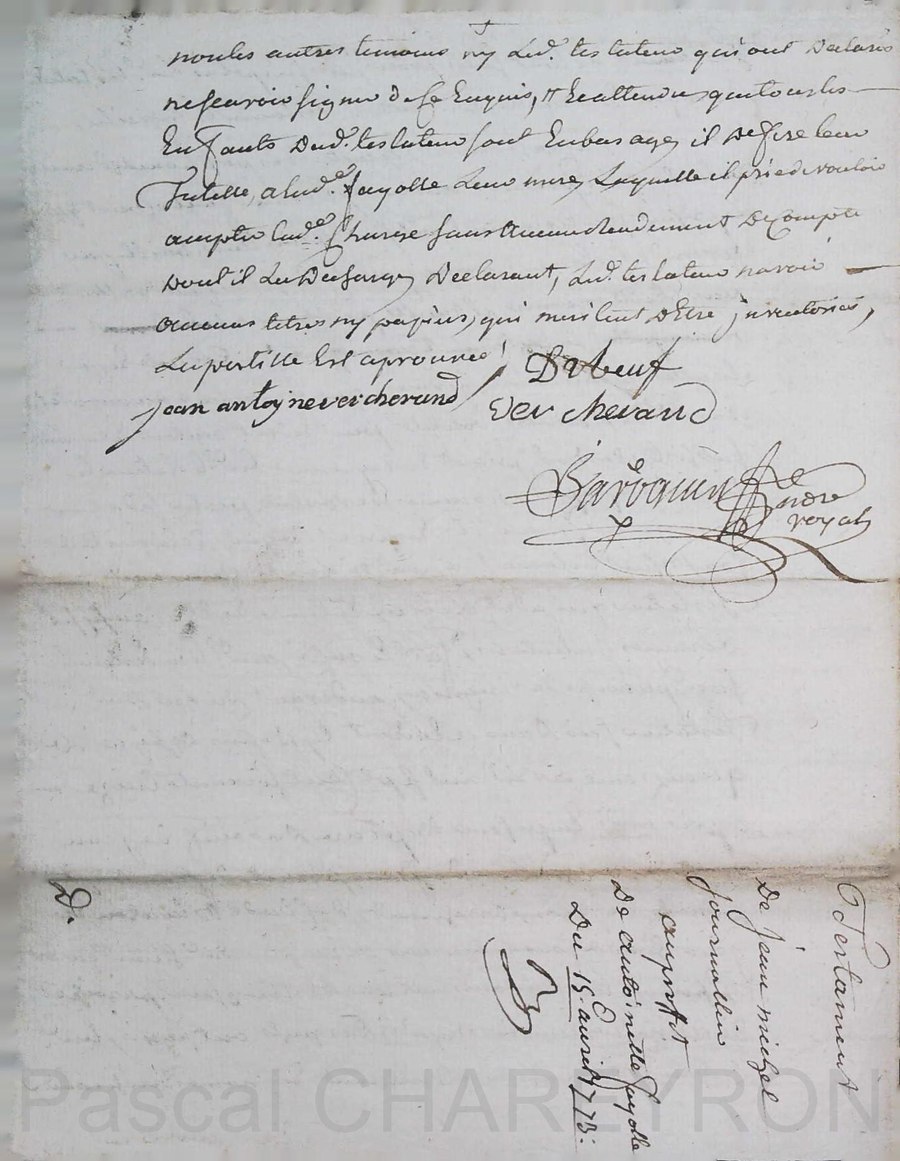 non les autres temoins ny Lud. testateur qui ont Declaré
ne scavoir signer de ce Enquis, Et attendu que tous les
Enfants Dud. testateur sont En bas age, il Defere leur
Tutelle, a lad.e fayolle Leur mere, Laquelle il prie de vouloir
accepter lad.e Charge sans Aucun Rendement De Compte
Dont il La Decharge, Declarant, Lud. testateur n'avoir
aucuns titres ny papiers, qui meritent D'Etre inventoriés,
La postille Est aprouvée /
Duboeuf
jean antoj ne vercherand
Vercherand
nore
royal
Testament
De jean michel
journallier
au proffit
De antoinette fayolle
Du 15. avril 1773.
D.
Pascal CHAREYRON